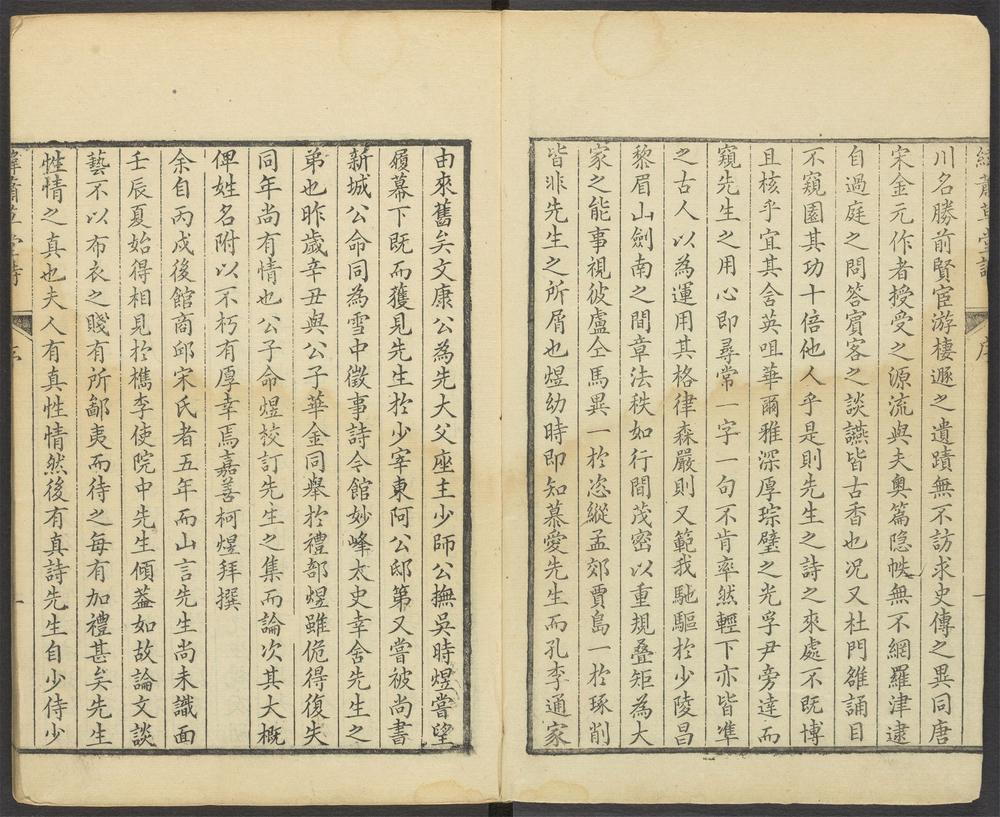 緯蕭草堂詩　序　一
川名勝前賢宦游棲遯之遺蹟無不訪求史傳之異同唐
宋金元作者授受之源流與夫奧篇隐帙無不網羅津逮
自過庭之問答賓客之談讌皆古香也况又杜門雒誦目
不窺園其功十倍他人乎是則先生之詩之來處不既博
且核乎宜其含英咀華爾雅深厚琮璧之光孚尹旁達而
窺先生之用心即尋常一字一句不肯率然輕下亦皆凖
之古人以為運用其格律森嚴則又範我馳驅於少陵昌
黎眉山劍南之間章法秩如行間茂密以重規叠矩為大
家之能事視彼盧仝馬異一於恣縱孟郊賈島一於琢削
皆非先生之所屑也煜幼時即知慕愛先生而孔李通家
由來舊矣文康公為先大父座主少師公撫吳時煜嘗望
履幕下既而獲見先生於少宰東阿公邸第又嘗被尚書
新城公命同為雪中徵事詩令館妙峰太史幸舍先生之
弟也昨歲辛丑與公子華金同舉於禮部煜雖佹得復失
同年尚有情也公子命煜校訂先生之集而論次其大概
俾姓名附以不朽有厚幸焉嘉善柯煜拜撰
余自丙戌後館商邱宋氏者五年而山言先生尚未識面
壬辰夏始得相見於檇李使院中先生傾葢如故論文談
藝不以布衣之賤有所鄙夷而待之每有加禮甚矣先生
性情之真也夫人有真性情然後有真詩先生自少侍少
緯蕭草堂詩　一